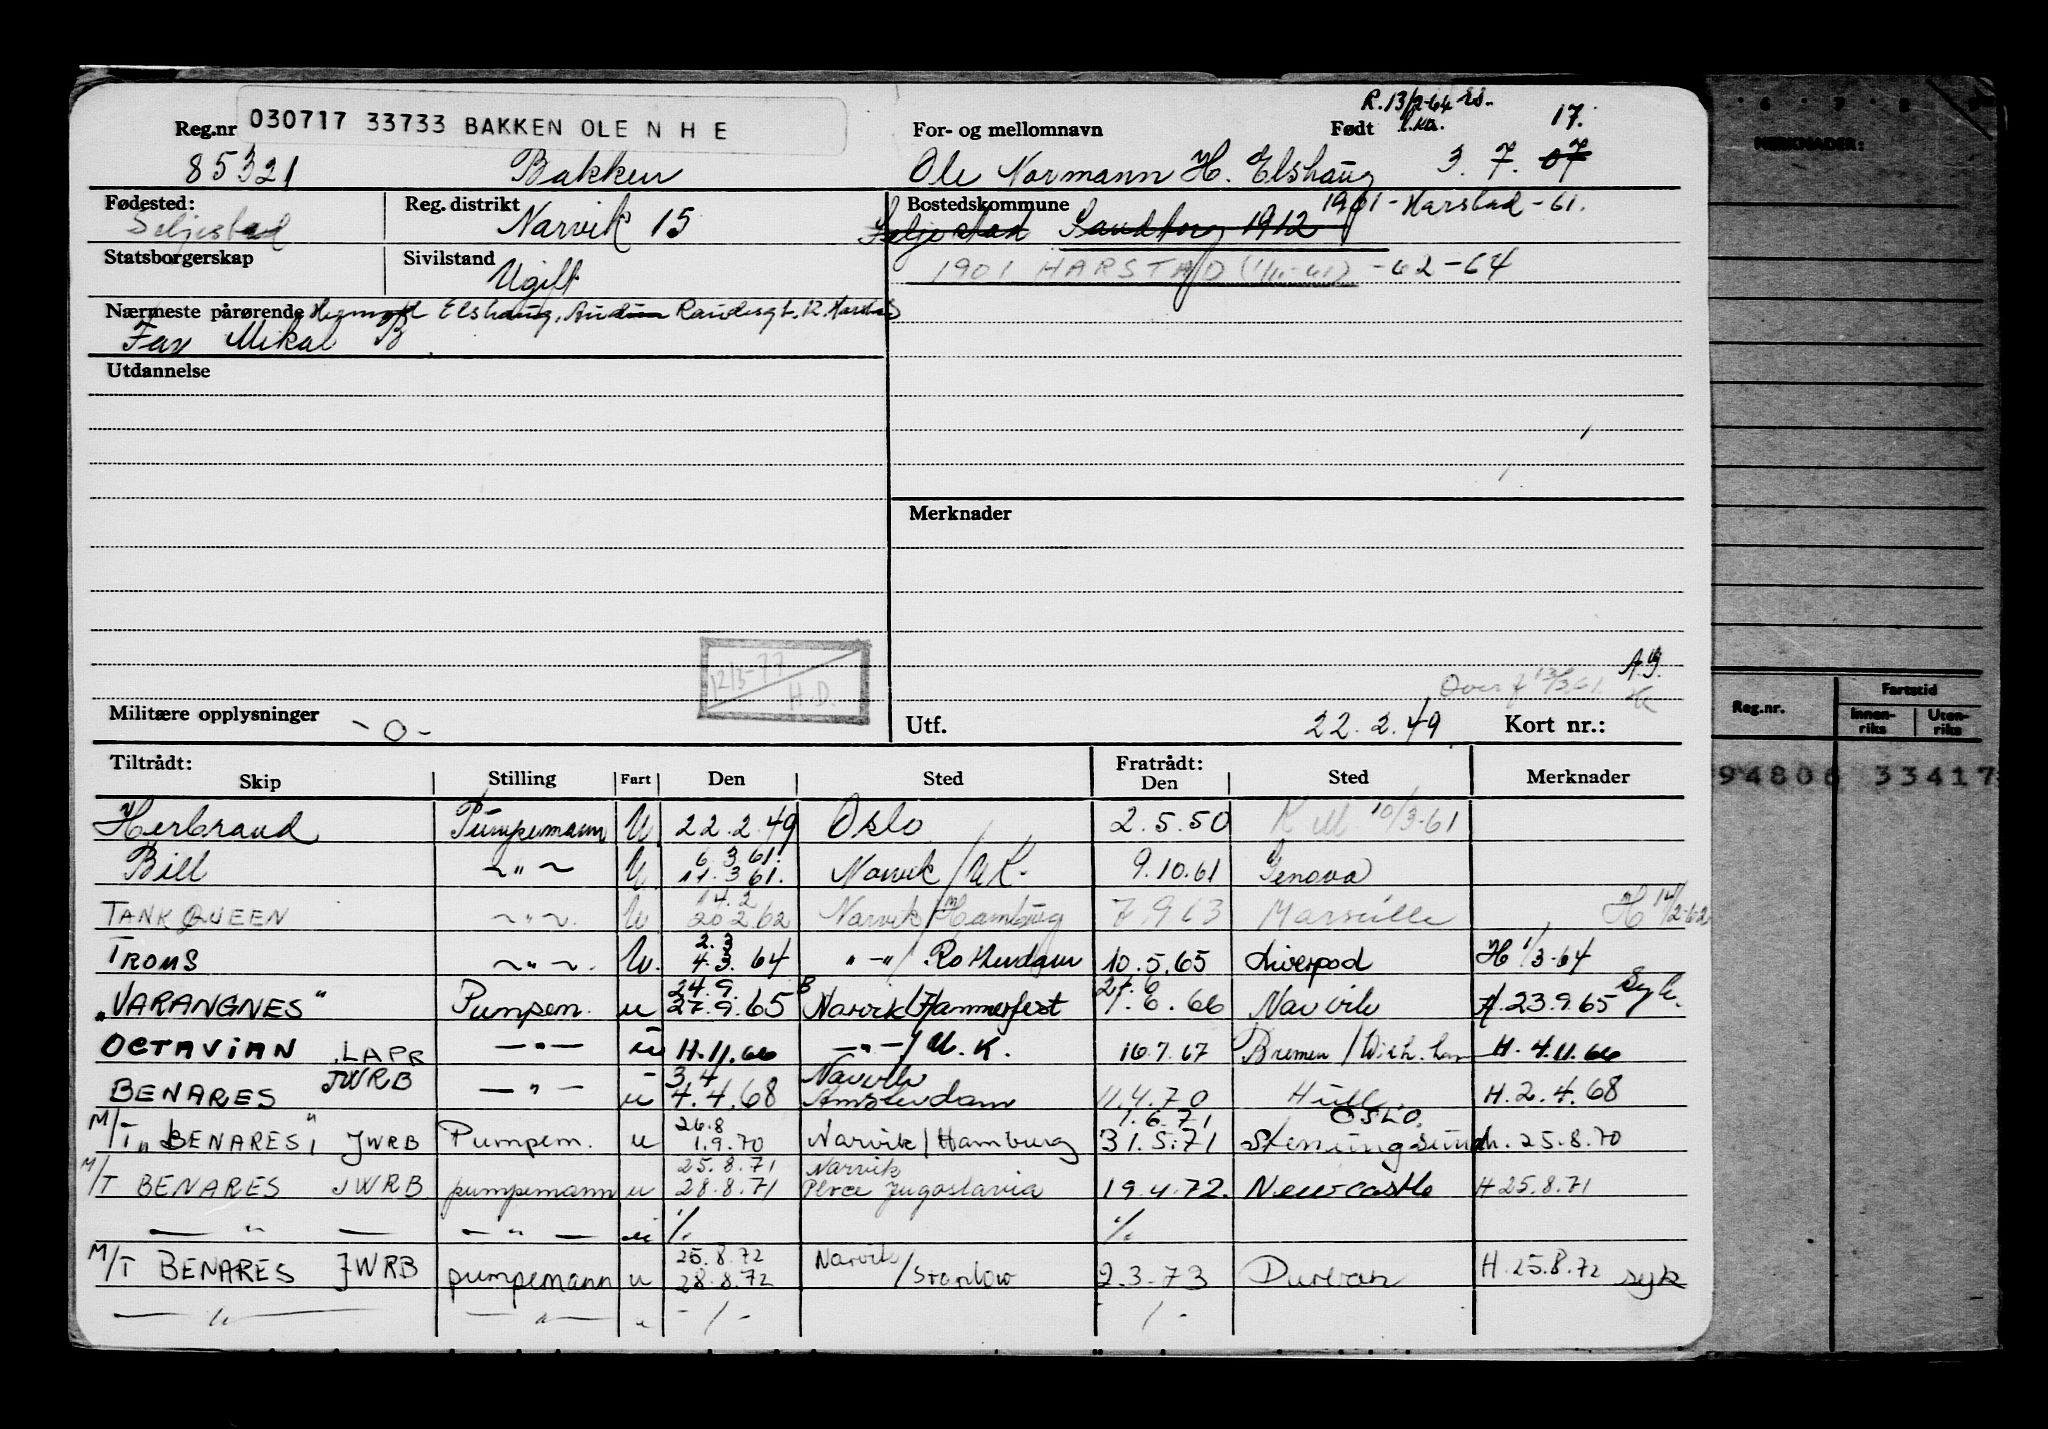 R. 13/2-64 rs.
Reg.nr 030717 33733 BAKKEN OLE N H E For- og mellomnavn Født 17.
85321 Bakken Ole Normann H. Elshaug 3. 7. 07
Fødested: Reg. distrikt Bostedskommune 1901 - Harstad - 61.
Seljestad Narvik 15 Seljestad Sandtorg 1912
Statsborgerskap Sivilstand 1901 HARSTAD (1/11-61) - 62 - 64
Ugift
Nærmeste pårørende Elshaug, 12 Harstad
Far Mikal B
Utdannelse
Merknader
12/3-77
H.D.
A.B.
Overf 13/3 61
Militære opplysninger - 0 - Utf. 22. 2. 49 Kort nr.:
Tiltrådt: Fratrådt:
Skip Stilling Fart Den Sted Den Sted Merknader
Herbrand Pumpemann U 22. 2. 49 Oslo 2. 5. 50 K M 10/3-61
6. 3 61.
Bill ~ " ~ U 11. 3 61. Narvik / U K. 9. 10. 61 Genova
14. 2
TANK QUEEN ~ " ~ U 20 2. 62 Narvik / Hamburg 7. 9 63 Marseille H 14/2-62
2. 3
TROMS ~ " ~ U. 4. 3. 64 " - " / Rotterdam 10. 5. 65 Liverpool H 1/3-64
24. 9. 27. 6 Syk.
"VARANGNES" Pumpem. u 27. 9. 65 Narvik / Hammerfest 6. 66 Narvik H. 23. 9. 65
OCTAVIAN LAPR — " — u 11. 11. 66 — " — / U. K. 16. 7. 67 Bremen H. 4. 11. 66
3. 4 Narvik
BENARES JWRB — " — u 4. 4. 68 Amsterdam 11. 4. 70 Hull H. 2. 4. 68
26. 8 1. 6. 71 OSLO.
M/T "BENARES" JWRB Pumpem. u 1. 9. 70 Narvik / Hamburg 31. 5. 71 Stenungsund h. 25. 8. 70
25. 8. 71 Narvik
M/T BENARES JWRB pumpemann u 28. 8. 71 Ploce Jugoslavia 19. 4. 72. Newcastle H 25. 8. 71
— " — — " — u /. /.
25. 8. 72 Narvik
M/T BENARES JWRB pumpemann u 28. 8. 72 / Stanlow 2. 3. 73 Durban H. 25. 8. 72 syk
— " — — " — u - / - - / -
6 7 8
MERKNADER:
Reg.nr. Fartstid
Innen-riks Uten-riks
94806 33417